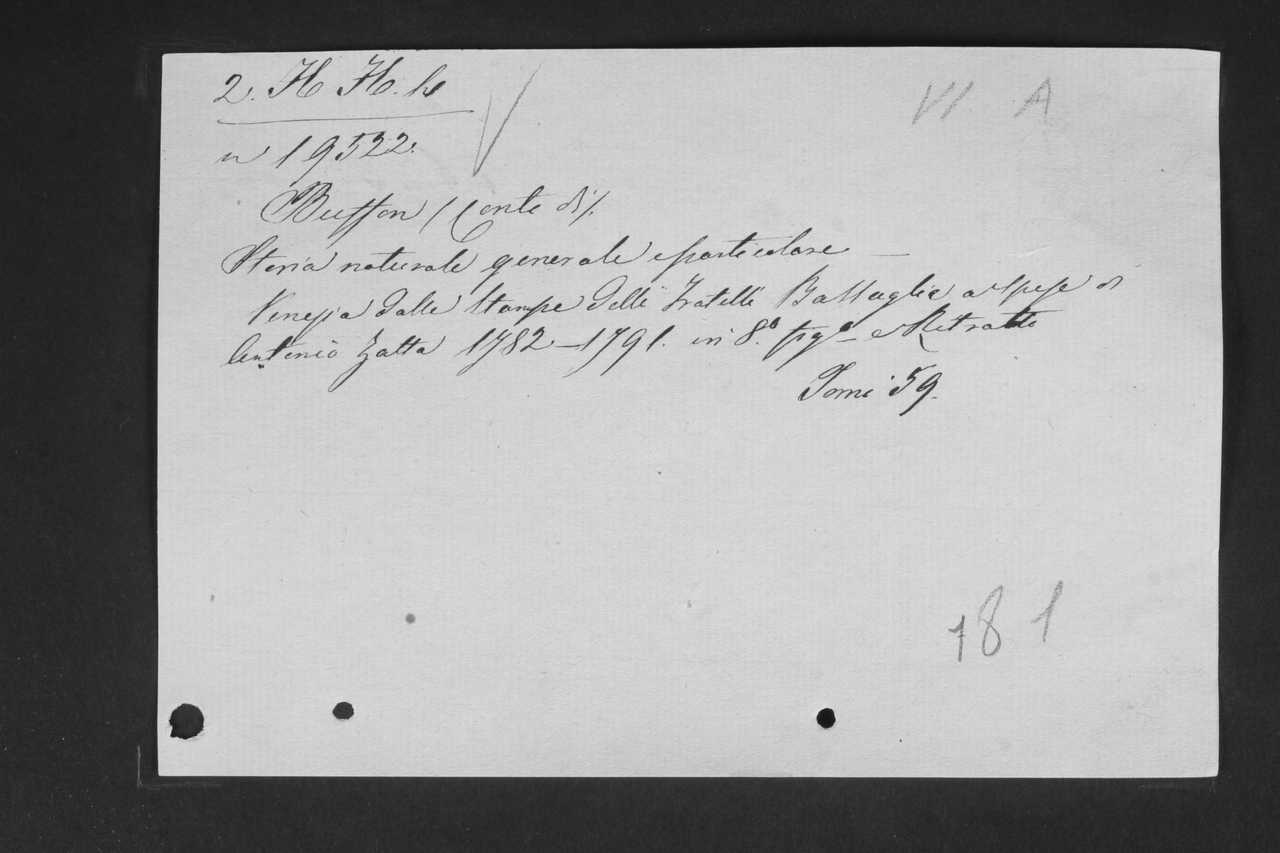 2. H H. h
VI. A
n 19522.
Buffon / Conte di /.
Storia naturale generale e particolare —
Venezia dalle Stampe delli Fratelli Bassaglia a spese di
Antonio Zatta 1782 – 1791. in 8.º fig.e e Ritratto
Tomi 59.
181